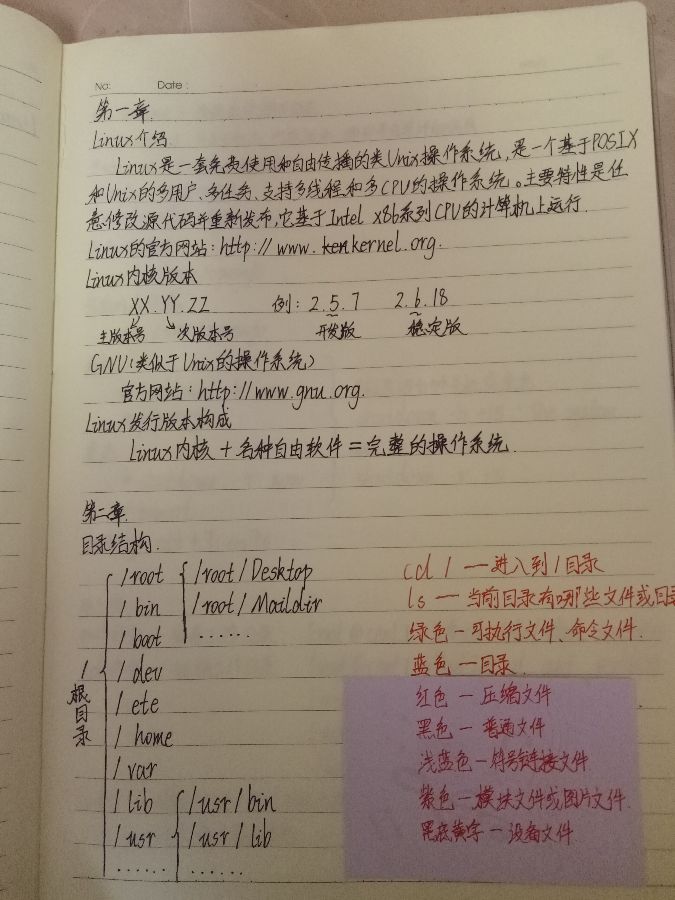 No:
Date:
第一章.
Linux介绍.
Linux是一套免费使用和自由传播的类Unix操作系统,是一个基于POSIX
和Unix的多用户、多任务、支持多线程和多CPU的操作系统。主要特性是任
意修改源代码并重新发布,它基于Intel x86系列CPU的计算机上运行.
Linux的官方网站:http://www.kenkernel.org.
Linux内核版本
XX.YY.ZZ 例: 2.5.7 2.6.18
主版本号 次版本号 开发版 稳定版
GNU(类似于Unix的操作系统)
官方网站:http://www.gnu.org.
Linux发行版本构成
Linux内核+各种自由软件=完整的操作系统.
第二章.
目录结构.
/ 根目录
/root
/bin
/boot
/dev
/ete
/home
/var
/lib
/usr
......
/root/Desktop
/root/Maildir
......
/usr/bin
/usr/lib
......
cd / 一进入到/目录
ls 一 当前目录有哪些文件或目录
绿色-可执行文件、命令文件.
蓝色一目录.
红色 一 压缩文件
黑色 一 普通文件
浅蓝色-符号链接文件
紫色-模块文件或图片文件.
黑底黄字-设备文件.